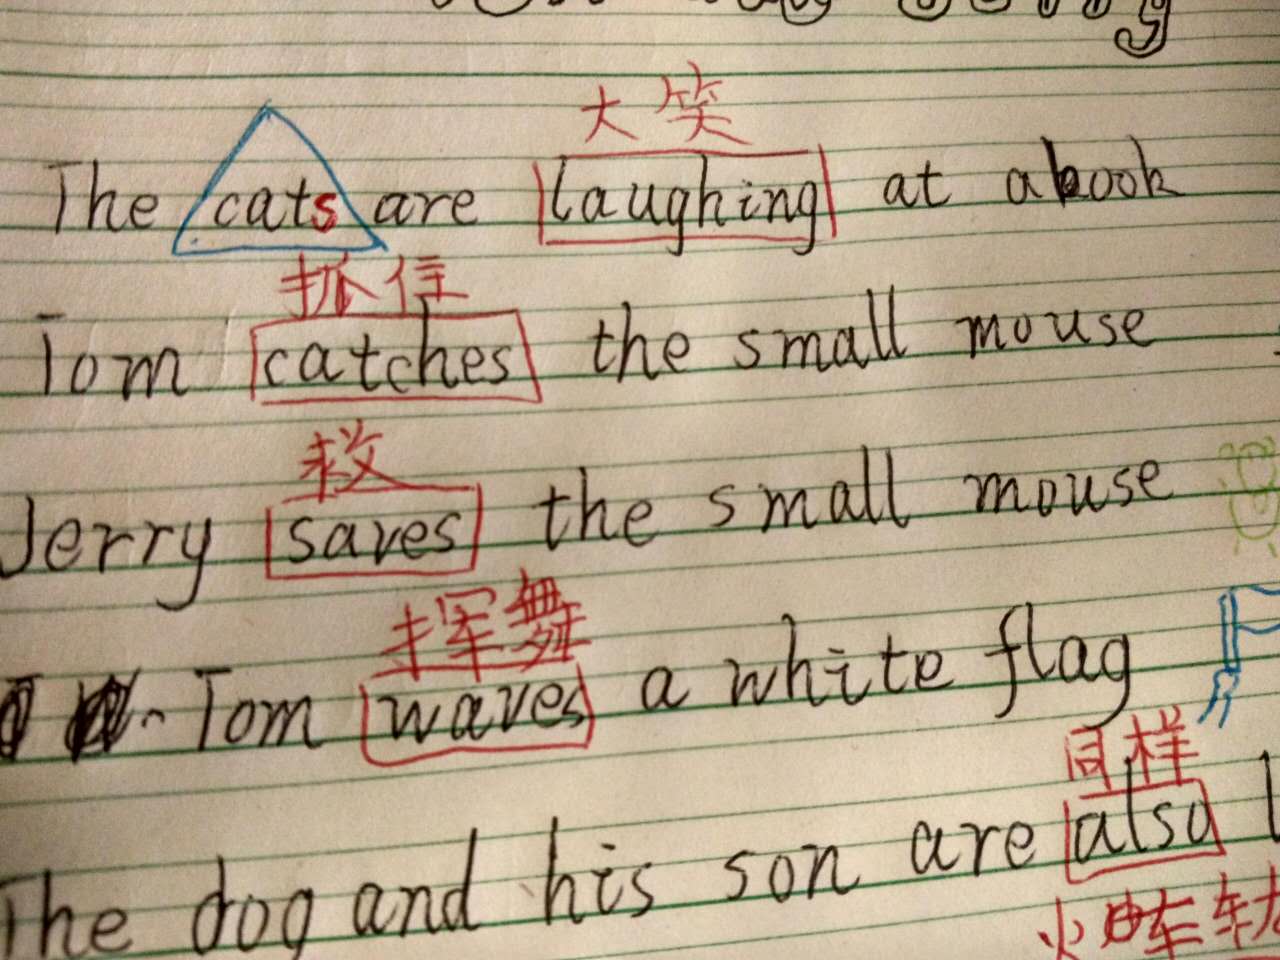 大笑
The cats are laughing at a book
抓住
Tom catches the small mouse
救
Jerry saves the small mouse
挥舞
Tom waves a white flag
同样
The dog and his son are also
火车轨